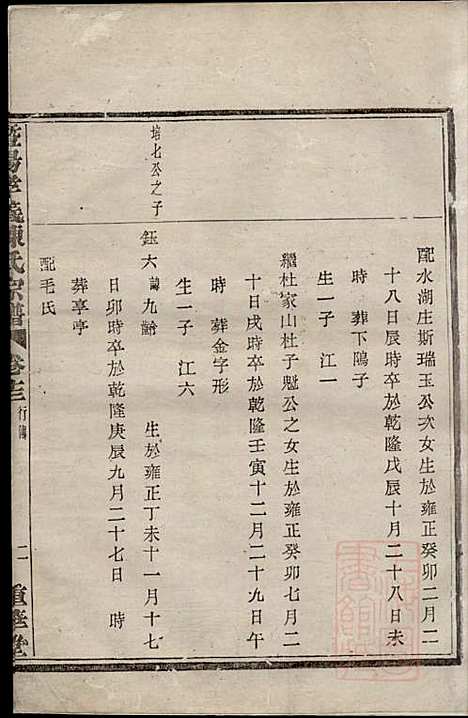 配水湖庄斯瑞玉公次女生於雍正癸卯二月二
十八日辰時卒於乾隆戊辰十月二十八日未
時 葬下隝子
生一子 江一
繼杜家山杜子魁公之女生於雍正癸卯七月二
十日戌時卒於乾隆壬寅十二月二十九日午
時 葬金字形
生一子 江六
培七公之子
鈺六 諱九齡 生於雍正丁未十一月十七
日卯時卒於乾隆庚辰九月二十七日 時
葬享亭
配毛氏
暨陽孝義陳氏宗譜 卷十三 行傳 二 重華堂